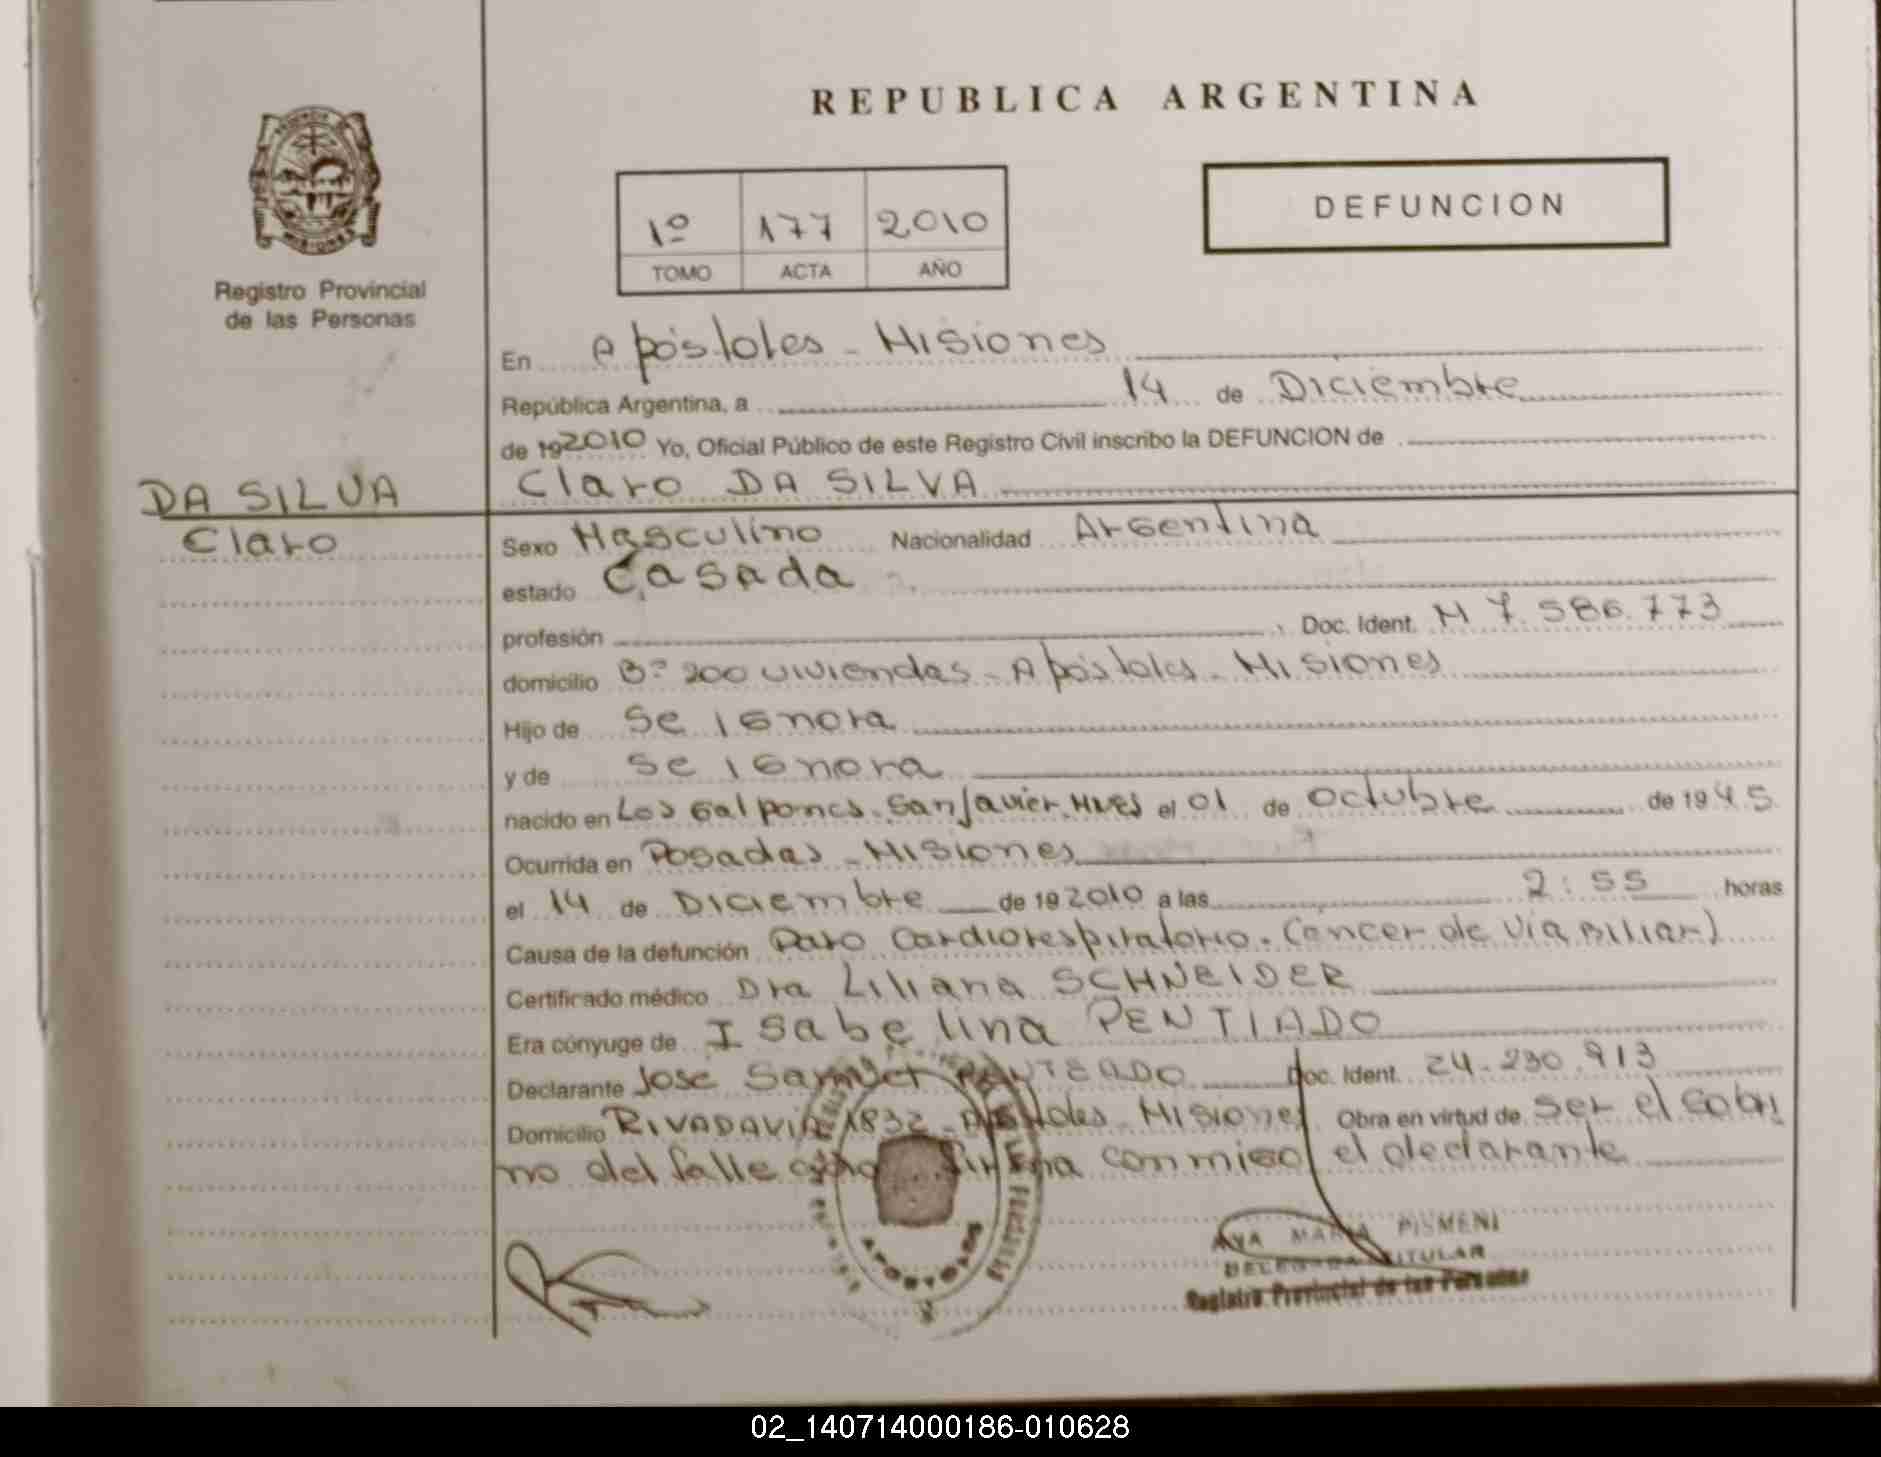 REPUBLICA ARGENTINA
1º 177 2010
TOMO ACTA AÑO
DEFUNCION
MISIONES
Registro Provincial
de las Personas
DA SILVA
Claro
En Apóstoles - Misiones
República Argentina, a 14 de Diciembre
de 192010 Yo, Oficial Público de este Registro Civil inscribo la DEFUNCION de
Claro DA SILVA
Sexo Masculino Nacionalidad Argentina
estado Casada
profesión Doc. Ident. M 7.586.773
domicilio Bº 200 viviendas - Apóstoles - Misiones
Hijo de Se ignora
y de Se ignora
nacido en Los Galpones - San Javier - Mnes el 01 de Octubre de 1945
Ocurrida en Posadas - Misiones
el 14 de Diciembre de 192010 a las 2:55 horas
Causa de la defunción Paro Cardiorespiratorio. (Cancer de Via Biliar)
Certificado médico Dra Liliana SCHNEIDER
Era cónyuge de Isabelina PENTIADO
Declarante Jose Samuel PENTEADO Doc. Ident. 24.230.913
Domicilio RIVADAVIA 1832 - Apóstoles - Misiones Obra en virtud de ser el sobri
no del fallecido Firma conmigo el declarante
APOSTOLES
MARIA PISMENI
DELEGADA TITULAR
Registro Provincial de las Personas
02_140714000186-010628